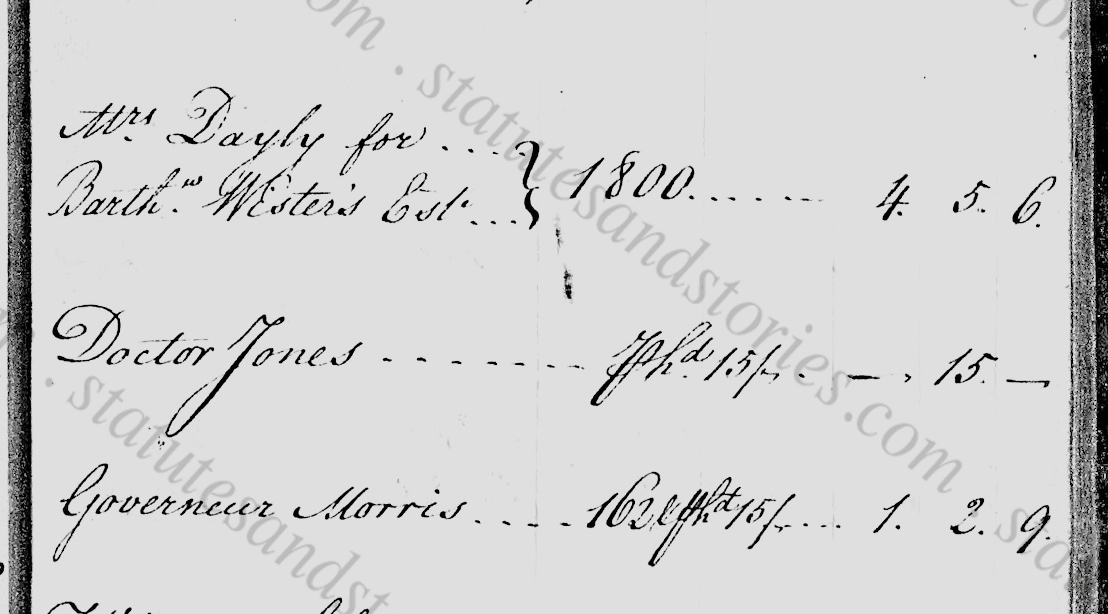 Mrs Dayly for ....
Barthw. Wister's Est. ... } 1800...... 4. 5. 6.
Doctor Jones ------- hd 15/. — . 15. —
Governeur Morris .... 162 hd 15/.... 1. 2. 9.
statutesandstories.com
statutesandstories.com